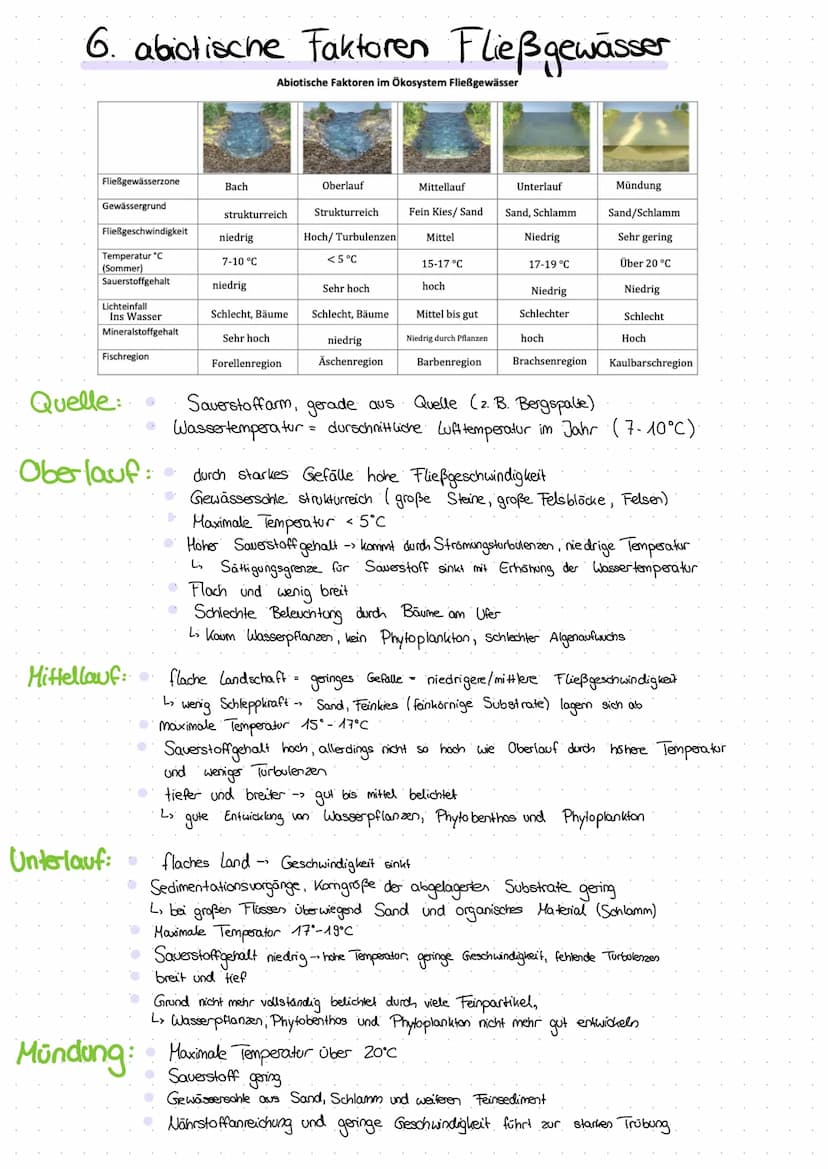 6. abiotische Faktoren Fließgewässer
Abiotische Faktoren im Ökosystem Fließgewässer
Fließgewässerzone Bach Oberlauf Mittellauf Unterlauf Mündung
Gewässergrund strukturreich Strukturreich Fein Kies/ Sand Sand, Schlamm Sand/Schlamm
Fließgeschwindigkeit niedrig Hoch/ Turbulenzen Mittel Niedrig Sehr gering
Temperatur °C (Sommer) 7-10 °C < 5 °C 15-17 °C 17-19 °C Über 20 °C
Sauerstoffgehalt niedrig Sehr hoch hoch Niedrig Niedrig
Lichteinfall Ins Wasser Schlecht, Bäume Schlecht, Bäume Mittel bis gut Schlechter Schlecht
Mineralstoffgehalt Sehr hoch niedrig Niedrig durch Pflanzen hoch Hoch
Fischregion Forellenregion Äschenregion Barbenregion Brachsenregion Kaulbarschregion
Quelle: • Sauerstoffarm, gerade aus Quelle (z. B. Bergspalte)
• Wassertemperatur = durschnittliche Lufttemperatur im Jahr (7-10°C)
Oberlauf: • durch starkes Gefälle hohe Fließgeschwindigkeit
• Gewässersohle strukturreich (große Steine, große Felsblöcke, Felsen)
• Maximale Temperatur < 5°C
• Hoher Sauerstoffgehalt -> kommt durch Strömungsturbulenzen, niedrige Temperatur
↳ Sättigungsgrenze für Sauerstoff sinkt mit Erhöhung der Wassertemperatur
• Flach und wenig breit
• Schlechte Beleuchtung durch Bäume am Ufer
↳ Kaum Wasserpflanzen, kein Phytoplankton, schlechter Algenaufwuchs
Mittellauf: • flache Landschaft = geringes Gefälle = niedrigere/mittlere Fließgeschwindigkeit
↳ wenig Schleppkraft -> Sand, Feinkies (feinkörnige Substrate) lagern sich ab
• maximale Temperatur 15°-17°C
• Sauerstoffgehalt hoch, allerdings nicht so hoch wie Oberlauf durch höhere Temperatur
und weniger Turbulenzen
• tiefer und breiter -> gut bis mittel belichtet
↳ gute Entwicklung von Wasserpflanzen, Phytobenthos und Phytoplankton
Unterlauf: • flaches Land -> Geschwindigkeit sinkt
• Sedimentationsvorgänge, Korngröße der abgelagerten Substrate gering
↳ bei großen Flüssen überwiegend Sand und organisches Material (Schlamm)
• Maximale Temperatur 17°-19°C
• Sauerstoffgehalt niedrig -> hohe Temperatur, geringe Geschwindigkeit, fehlende Turbulenzen
• breit und tief
• Grund nicht mehr vollständig belichtet durch viele Feinpartikel,
↳ Wasserpflanzen, Phytobenthos und Phytoplankton nicht mehr gut entwickeln
Mündung: • Maximale Temperatur über 20°C
• Sauerstoff gering
• Gewässersohle aus Sand, Schlamm und weiteren Feinsediment
• Nährstoffanreichung und geringe Geschwindigkeit führt zur starken Trübung